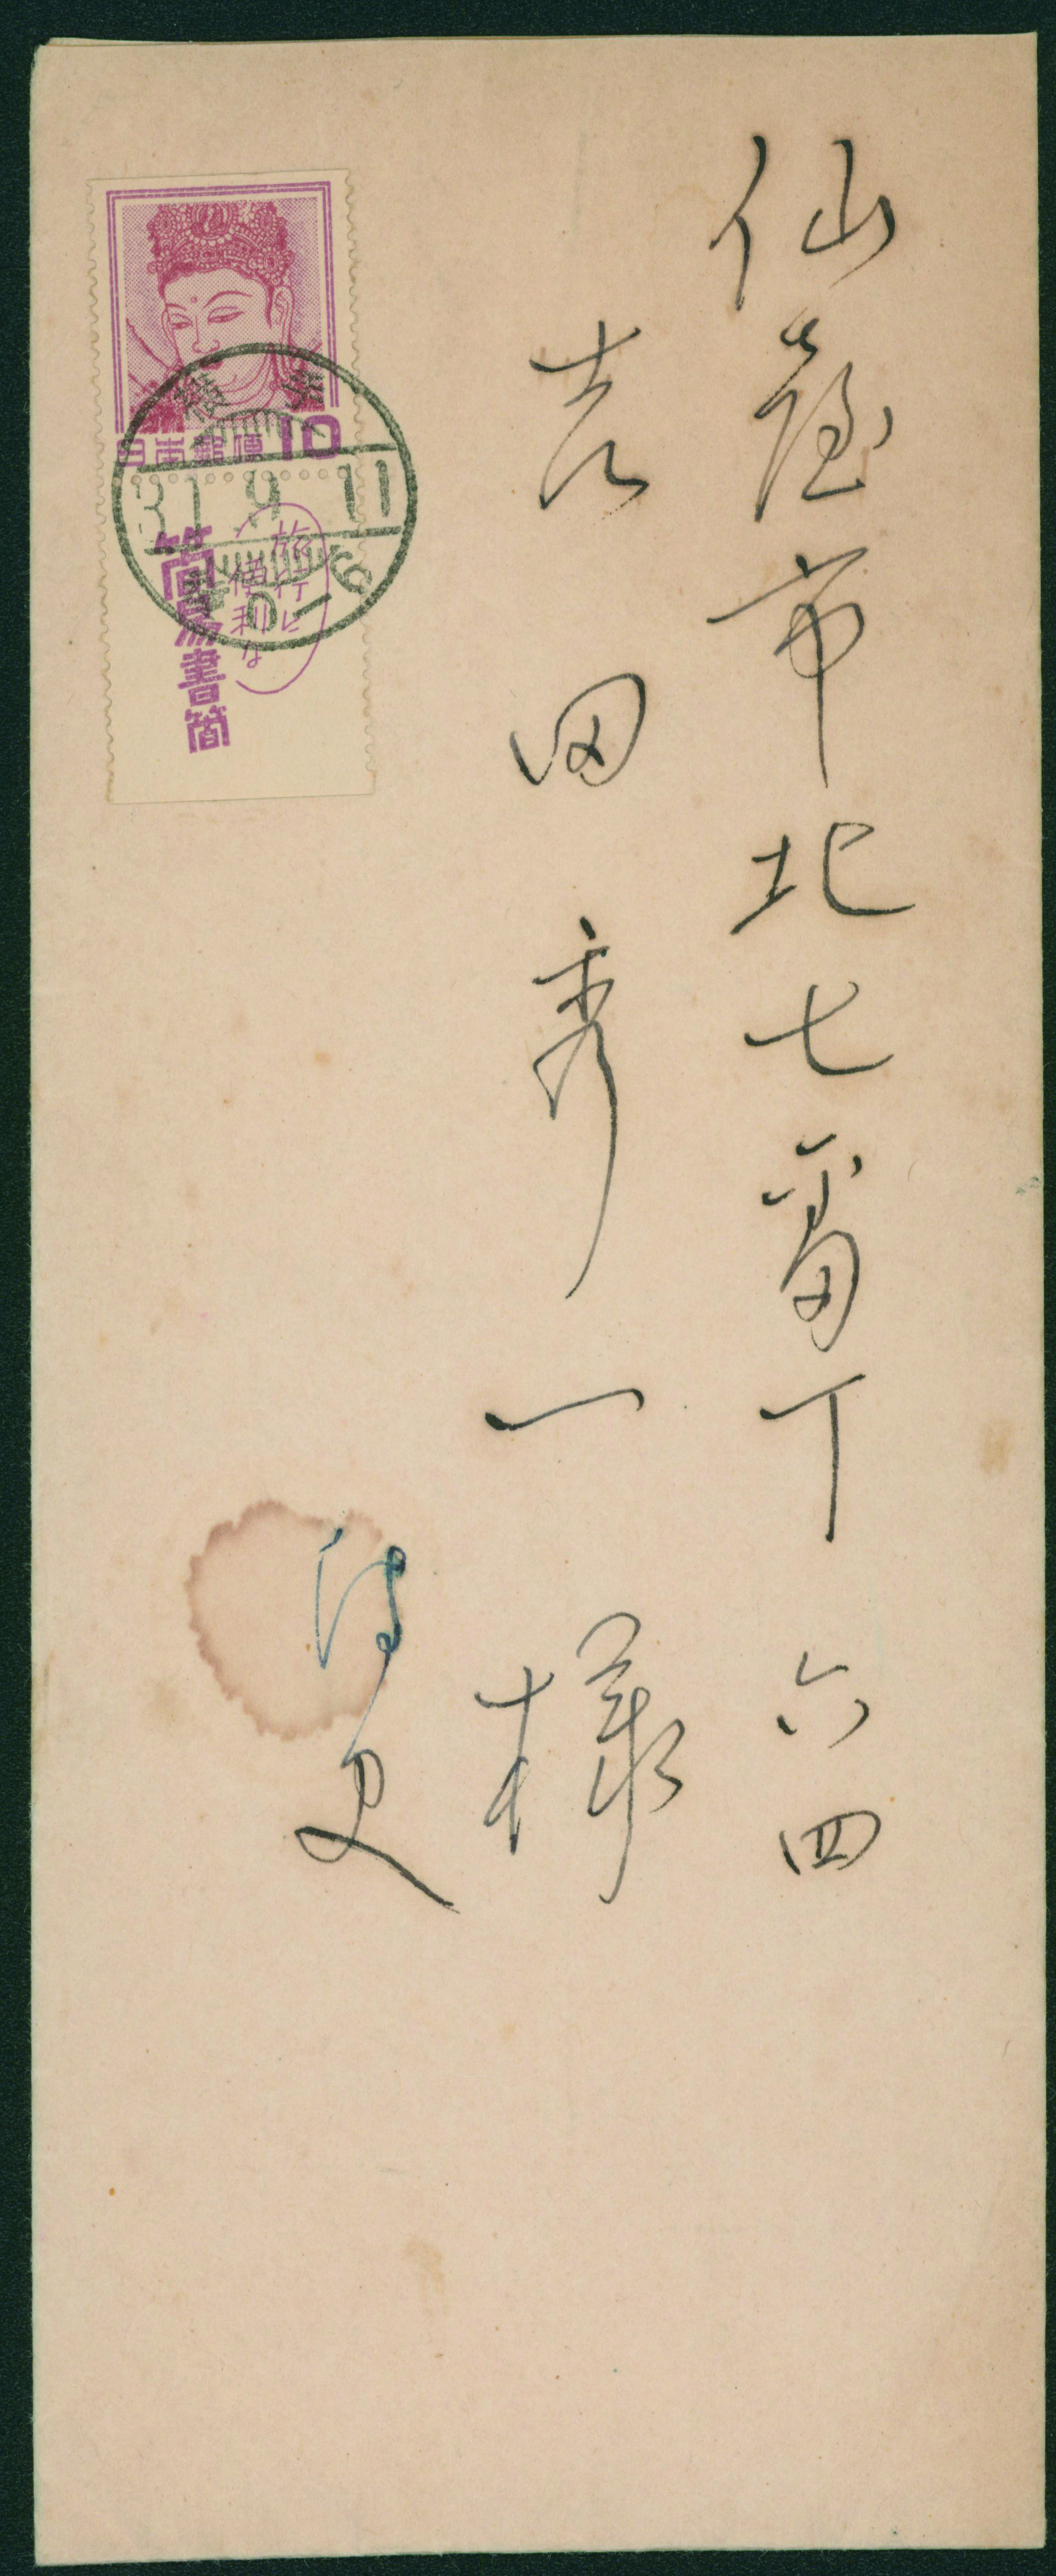 仙臺市北七番丁 六四
吉田秀一 様
侍史
日本郵便 10
31.9.11
0-6
旅行に
便利な
簡易書簡